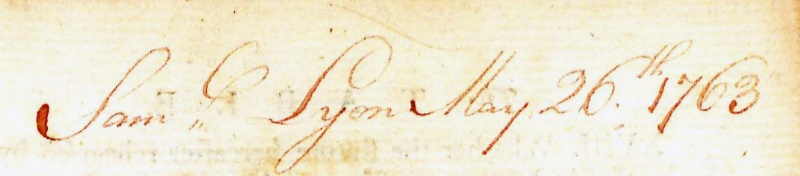 Saml Lyon May 26th 1763